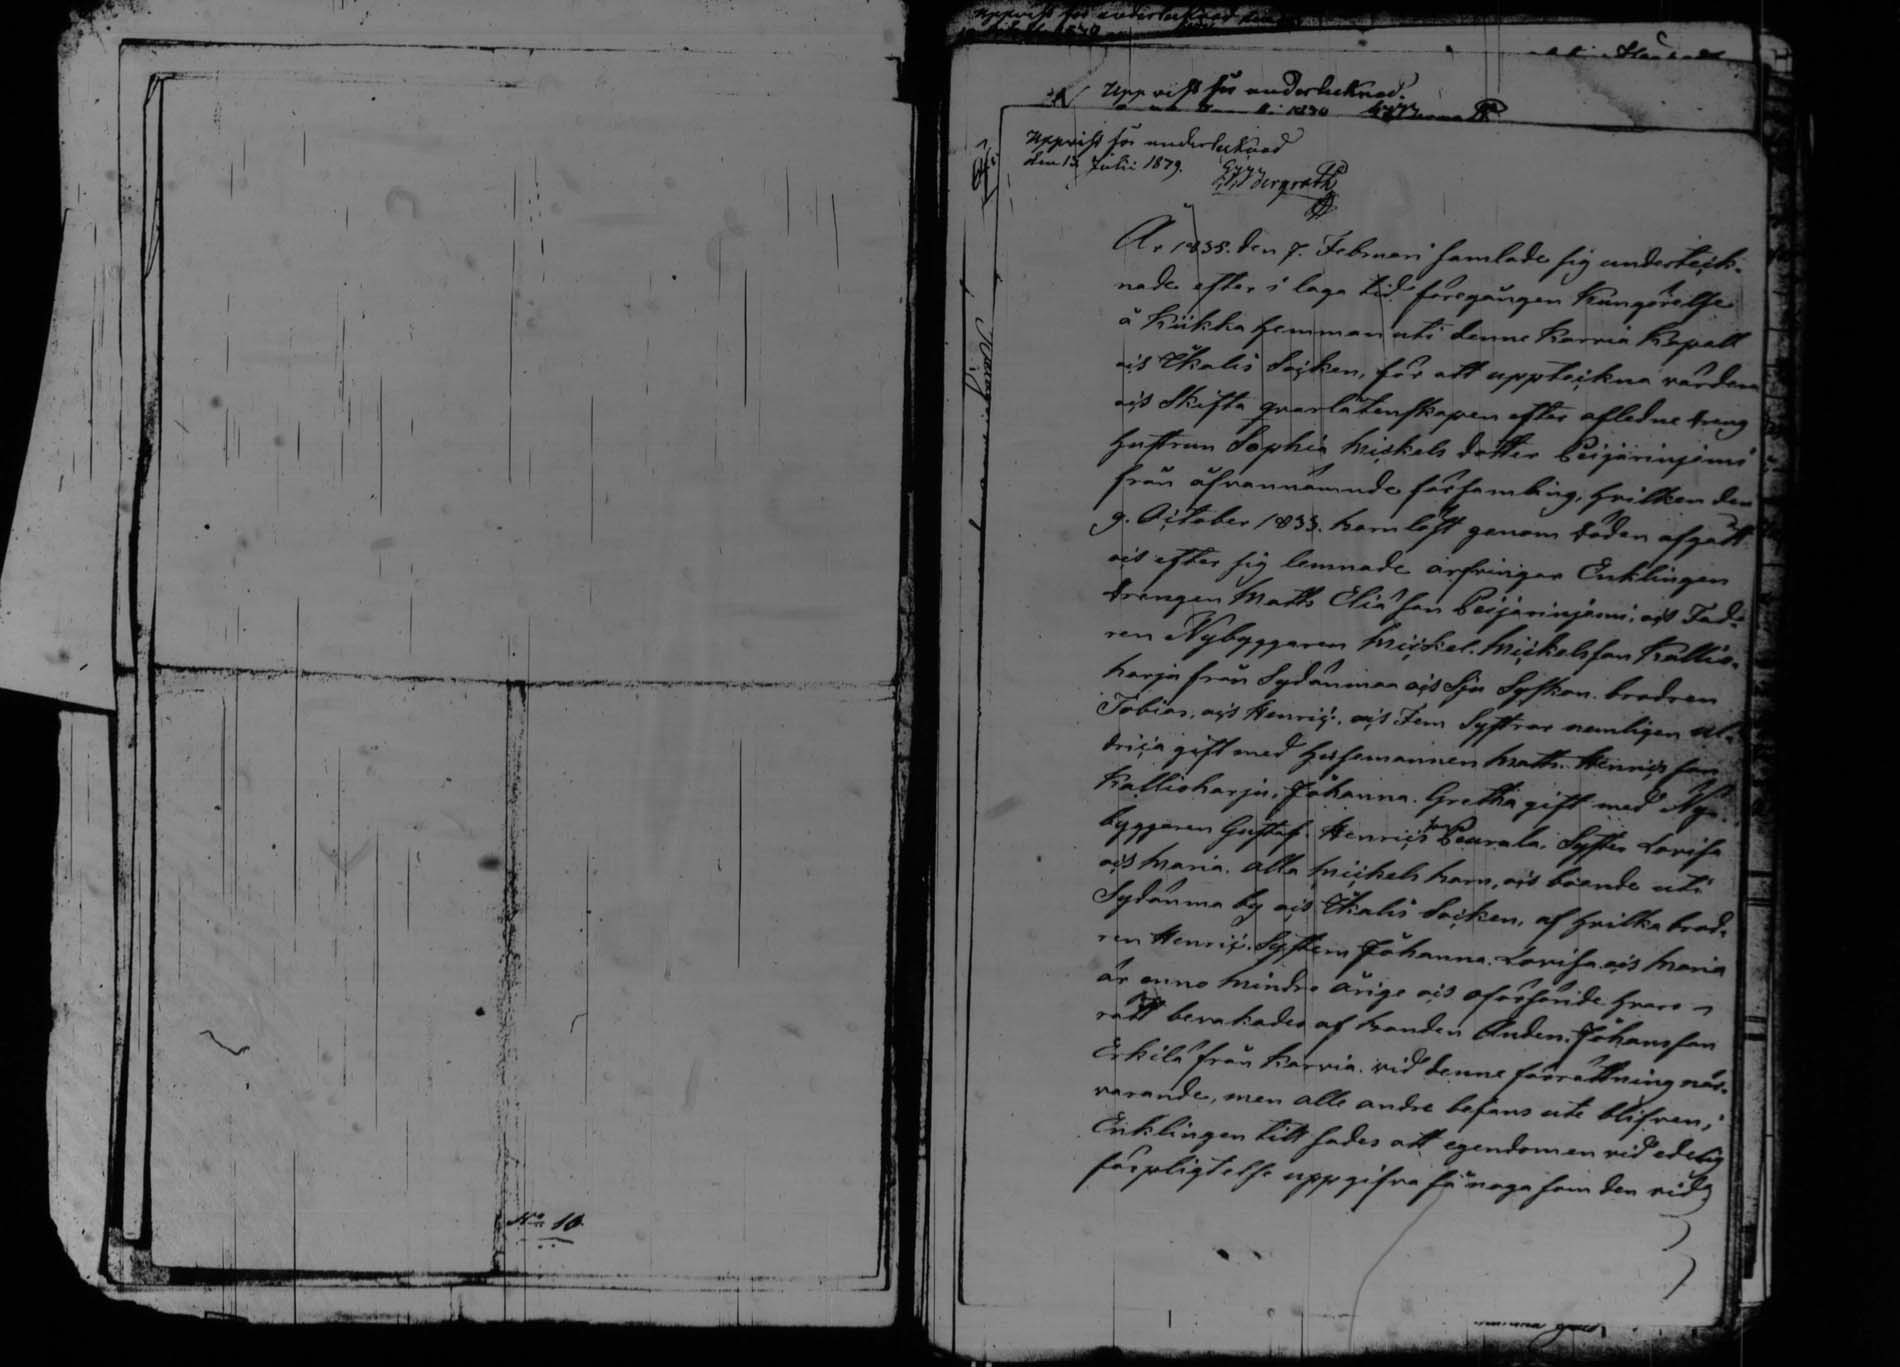 No 10.
Uppvist för undertecknad.
Uppvist för undertecknad
den 13 Julii 1879.
År 1835. den 7. Februari samlade sig underteck-
nade efter i laga tid föregången Kungörelse
å Kiikka hemman uti denne Karvia Kapell
och Ikalis Socken, för att uppteckna värdera
och Skifta qvarlåtenskapen efter aflidne dreng
hustrun Sophia Mickels dotter Peijariniemi
från åfvannämnde församling, hvilken den
9. October 1833. barnlöst genom döden afgått
och efter sig lemnade arfvingar Enklingen
drengen Matts Elia son Peijariniemi, och Fad-
ren Nybyggaren Mickel Mickelsson Kallio-
harju från Sydänmaa och Sju Syskon. brodren
Tobias, och Henric, och Fem Systrar nemligen Ul-
drica gift med husmannen Matts Henrics son
Kallioharju, Johanna. Gretha gift med Ny-
byggaren Gustaf Henrics son Peurala. Syster Lovisa
och Maria. alla Mickels barn, och boende uti
Sydänma by och Ikalis Socken, af hvilka brod-
ren Henric. Systern Johanna. Lovisa och Maria
är änno Mindre årige och oförsörjde hvars
rätt bevakades af bonden Anders Johansson
Erkilä från Karvia. vid denne förrättning när-
varande, men alle andre befans ute blifven,
Enklingen till sades att egendomen vid edelig
förpligtelse uppgifva så noga som den vid